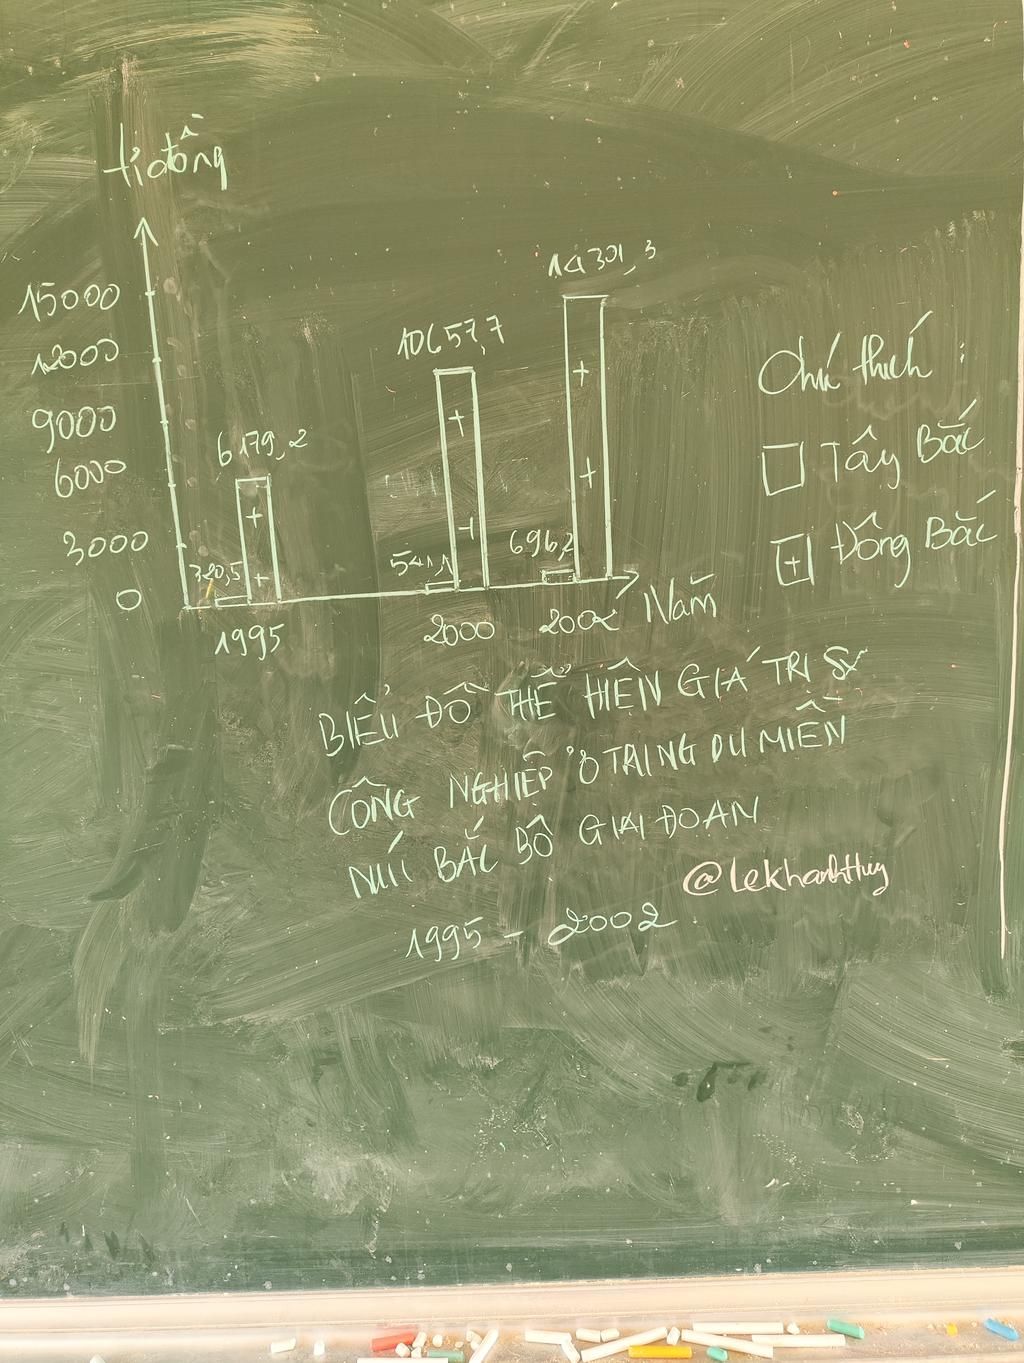 tỉ đồng
15000
12000
9000
6000
3000
0
320,5
6179,2
541,1
10657,7
696,2
14301,3
1995
2000
2002
Năm
Chú thích :
Tây Bắc
+ Đông Bắc
BIỂU ĐỒ THỂ HIỆN GIÁ TRỊ SX
CÔNG NGHIỆP Ở TRUNG DU MIỀN
NÚI BẮC BỘ GIAI ĐOẠN
1995 - 2002
@Lekhanhthuy